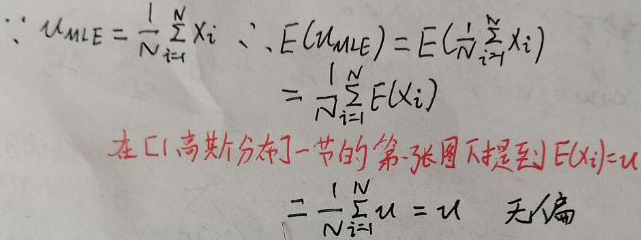 ∵ u_MLE = 1/N ∑_{i=1}^{N} x_i ∴ E(u_MLE) = E(1/N ∑_{i=1}^{N} x_i)
= 1/N ∑_{i=1}^{N} E(x_i)
在[1.高斯分布]一节的第一张图下提到E(x_i)=u
= 1/N ∑_{i=1}^{N} u = u 无偏